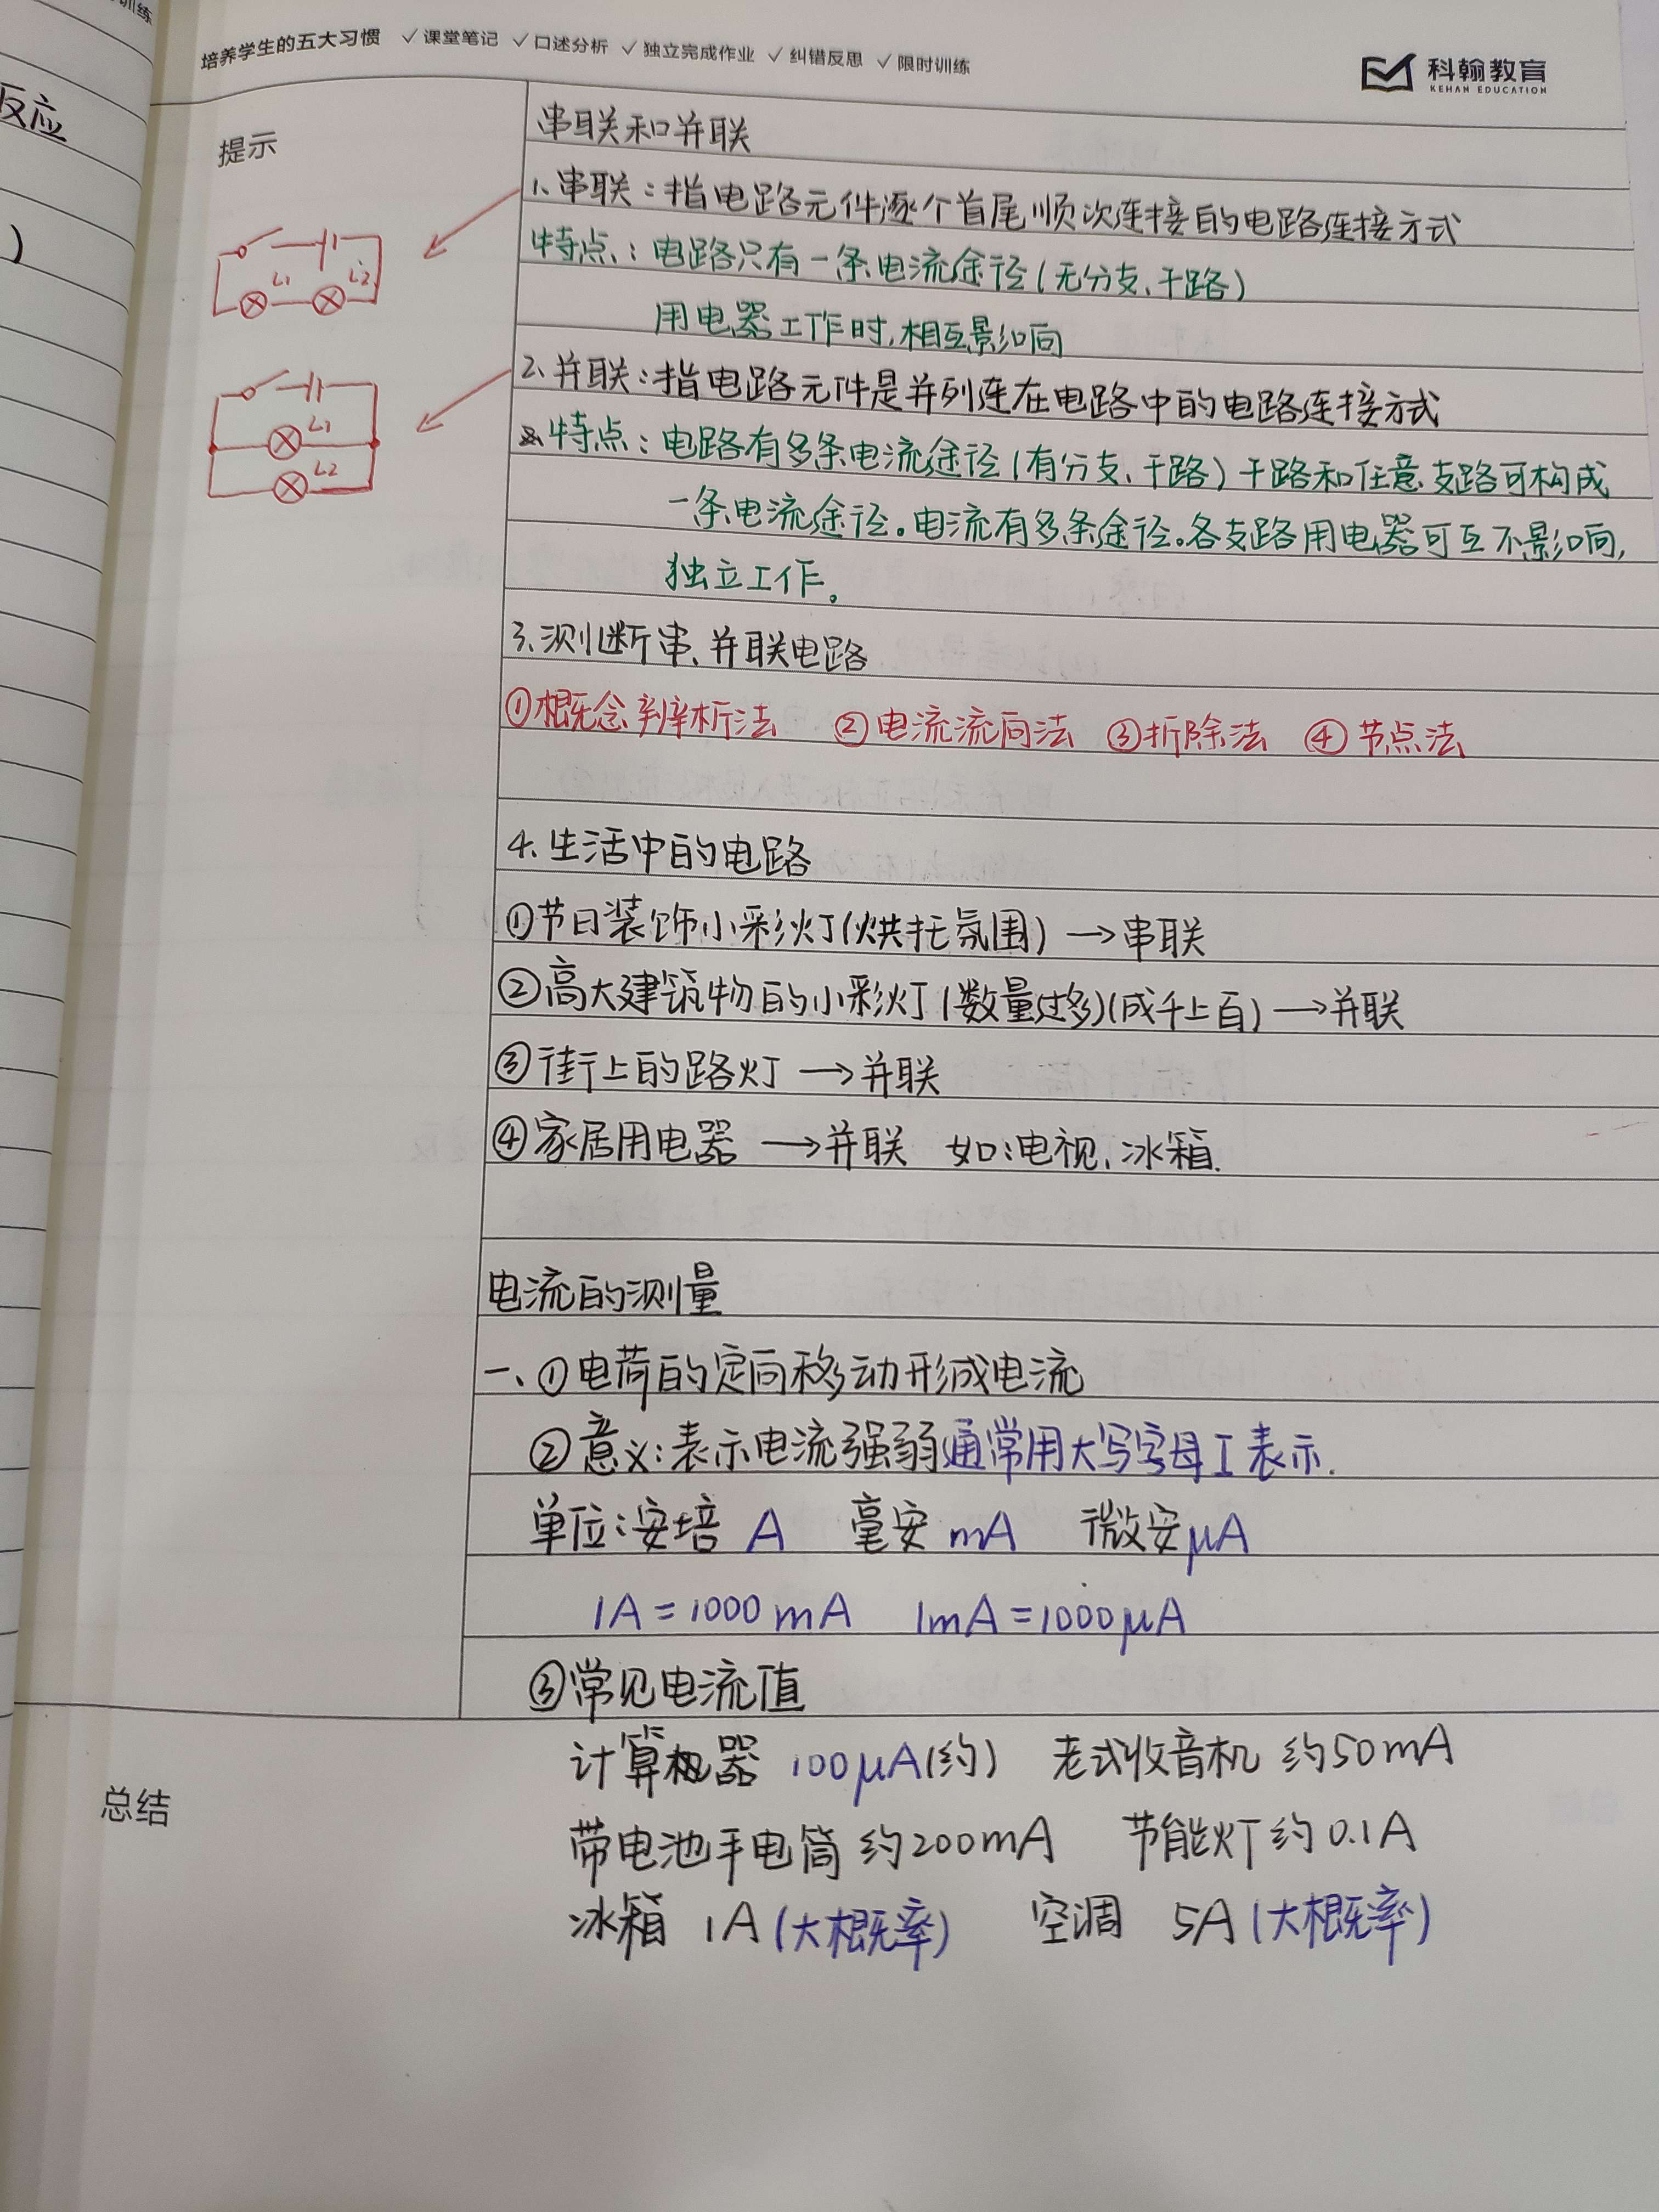 训练
反应
)
培养学生的五大习惯 ✓课堂笔记 ✓口述分析 ✓独立完成作业 ✓纠错反思 ✓限时训练
科翰教育
KEHAN EDUCATION
提示
L1 L2
L1
L2
串联和并联
1、串联：指电路元件逐个首尾顺次连接的电路连接方式
特点：电路只有一条电流途径(无分支、干路)
用电器工作时,相互影响
2、并联：指电路元件是并列连在电路中的电路连接方式
特点：电路有多条电流途径(有分支、干路)干路和任意支路可构成
一条电流途径。电流有多条途径。各支路用电器可互不影响,
独立工作。
3、测断串、并联电路
①概念辨析法 ②电流流向法 ③折除法 ④节点法
4、生活中的电路
①节日装饰小彩灯(烘托氛围)→串联
②高大建筑物的小彩灯(数量过多)(成千上百)→并联
③街上的路灯→并联
④家居用电器→并联 如:电视、冰箱.
电流的测量
一、①电荷的定向移动形成电流
②意义:表示电流强弱通常用大写字母I表示.
单位:安培 A 毫安 mA 微安μA
1A=1000mA 1mA=1000μA
③常见电流值
计算器 100μA(约) 老式收音机 约50mA
带电池手电筒 约200mA 节能灯约0.1A
冰箱 1A(大概率) 空调 5A(大概率)
总结